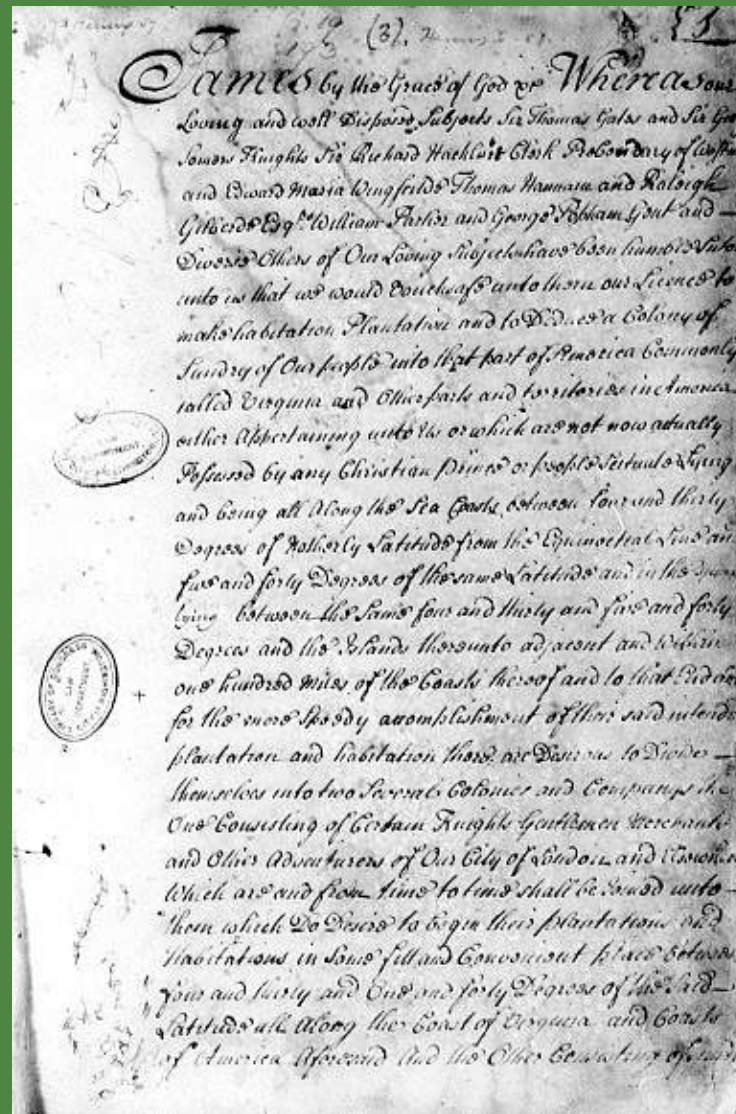 (3).
James by the Grace of God &c Whereas our
Loving and well Disposed Subjects Sir Thomas Gates and Sir Geo
Somers Knights Sir Richard Hackluit Clerk Prebendary of Westm
and Edward Maria Wingfeilde Thomas Hannam and Raleigh
Gilberde Esqrs William Parker and George Popham Gent and
Diverse Others of Our Loving Subjects have been humble Suto
unto us that we would vouchsafe unto them our Licence to
make habitation Plantation and to Deduce a Colony of
Sundry of Our people into that part of America Commonly
called Virginia and Other parts and territories in America
either Appertaining unto Us or which are not now actually
Possessed by any Christian Prince or people Scituate Lying
and being all Along the Sea Coasts between four and thirty
Degrees of Notherly Latitude from the Equinoctial Line an
five and forty Degrees of the same Latitude and in the
lying between the Same four and thirty and five and forty
Degrees and the Islands thereunto adjacent and within
one hundred Miles of the Coasts thereof and to that End an
for the more Speedy accomplishment of their said intend
plantation and habitation there are Desirous to Divide
themselves into two Several Colonies and Companys the
One Consisting of Certain Knights Gentlemen Merchants
and Other Adventurers of Our City of London and
Which are and from time to time shall be Joined unto
them which Do Desire to begin their plantations and
Habitations in Some fitt and Convenient place between
four and thirty and One and forty Degrees of the Said
Latitude all Along the Coast of Virginia and Coasts
of America Aforesaid And the Other Consisting of
LAW
DEPARTMENT